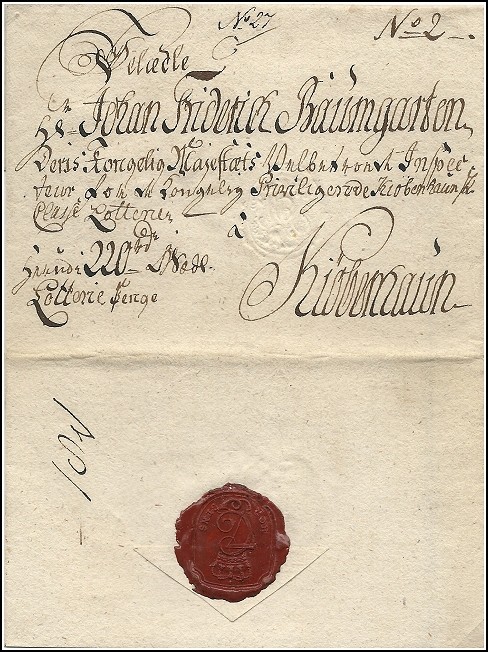 No 27
No 2
Velædle
Hr Johan Friderich Baumgarten
Deris Kongelig Mayestæts Velbetroede Inspec
teur ved de Kongelig Priviligerede Kiøbenhaunsk
Classe Lotterie
a
Herudi 220 rdr
Kiøbenhaun
Lotterie Penge